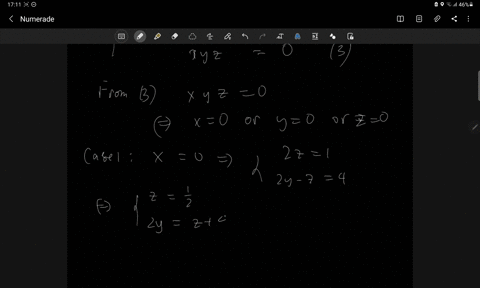 17:11
46%
Numerade
xyz = 0 (3)
From (3) xyz = 0
(=) x=0 or y=0 or z=0
Case 1: x = 0 => { 2z = 1
2y - z = 4
(=) { z = 1/2
2y = z +